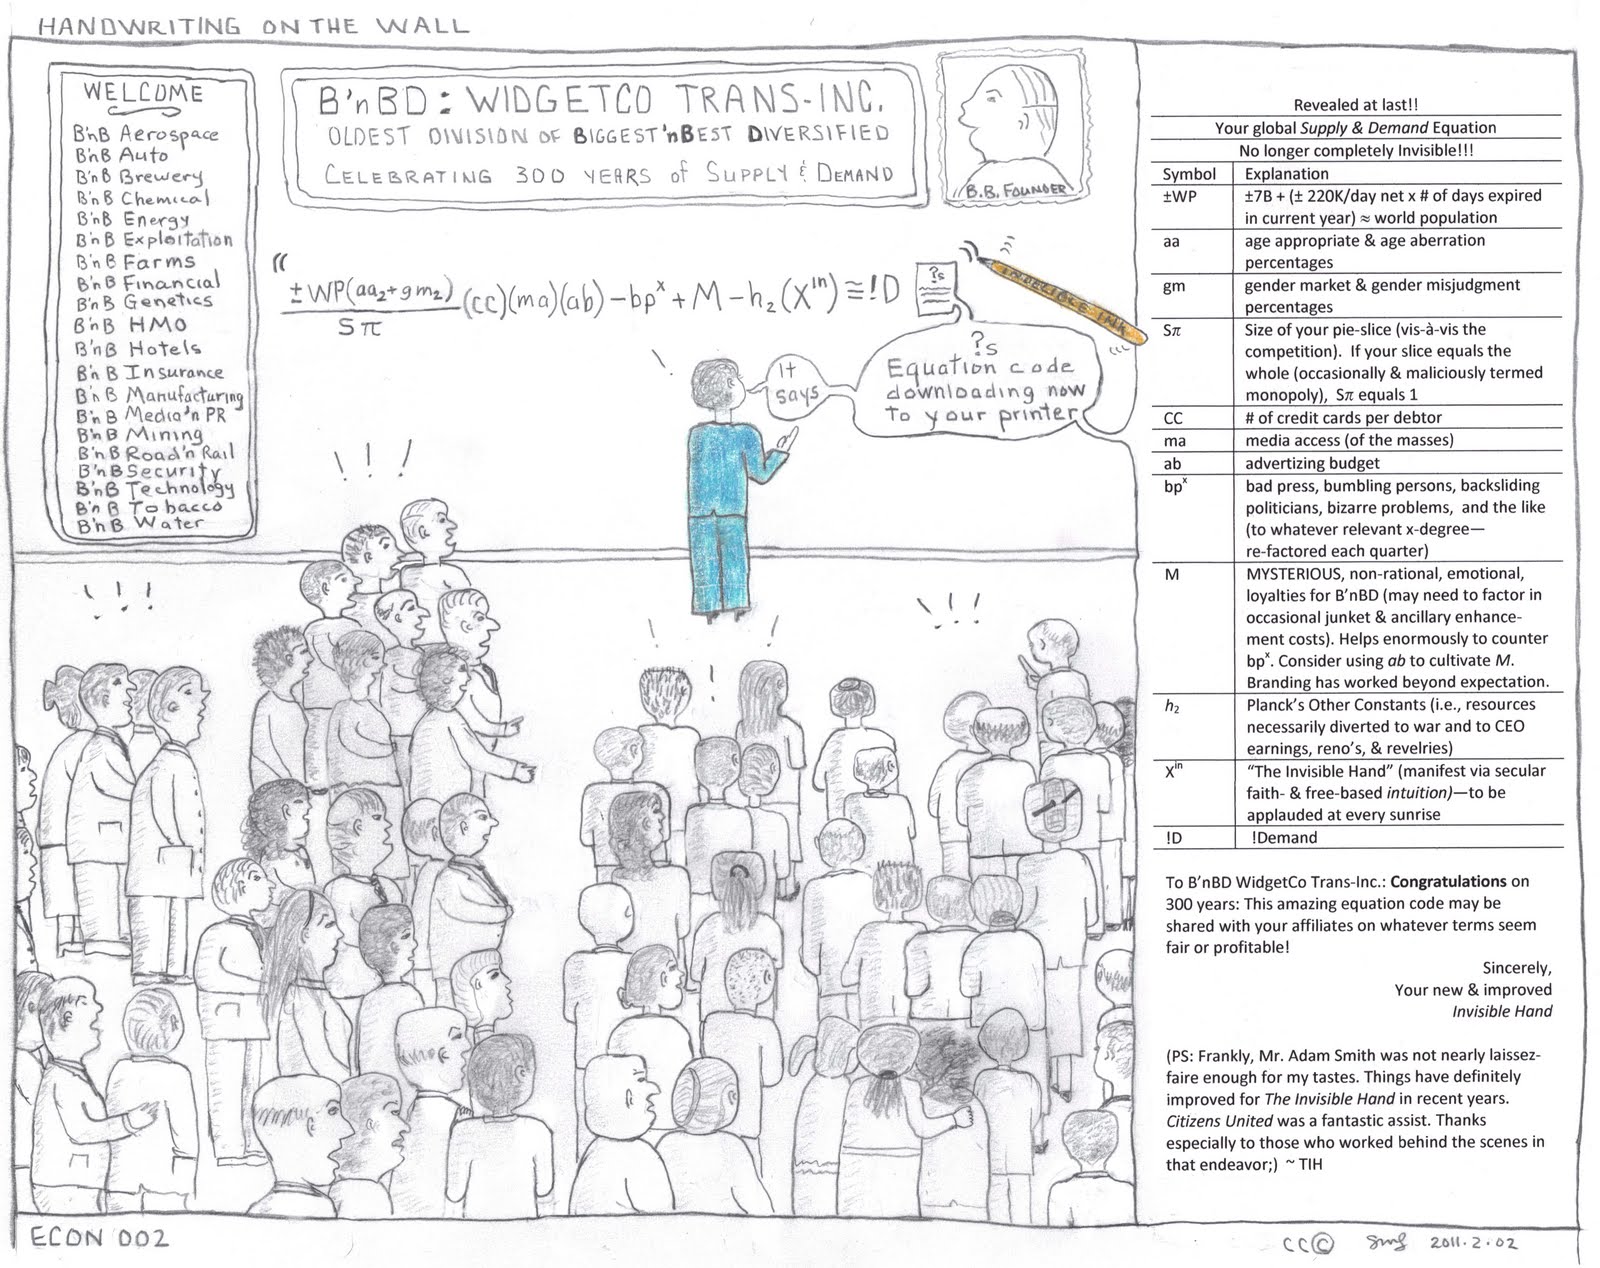 HANDWRITING ON THE WALL
WELCOME
B'nB Aerospace
B'nB Auto
B'nB Brewery
B'nB Chemical
B'nB Energy
B'nB Exploitation
B'nB Farms
B'nB Financial
B'nB Genetics
B'nB HMO
B'nB Hotels
B'nB Insurance
B'nB Manufacturing
B'nB Media'n PR
B'nB Mining
B'nB Road'n Rail
B'nB Security
B'nB Technology
B'nB Tobacco
B'nB Water
B'nBD: WIDGETCO TRANS-INC.
OLDEST DIVISION OF BIGGEST'nBEST DIVERSIFIED
CELEBRATING 300 YEARS of SUPPLY & DEMAND
B.B. FOUNDER
“ ±WP(aa₂+gm₂)/Sπ (cc)(ma)(ab) − bpˣ + M − h₂(Xⁱⁿ) ≅ !D
?s
INDELIBLE INK
It
says
?s
Equation code
downloading now
to your printer
! ! !
! ! !
! ! !
Revealed at last!!
Your global Supply & Demand Equation
No longer completely Invisible!!!
Symbol Explanation
±WP ±7B + (± 220K/day net x # of days expired
in current year) ≈ world population
aa age appropriate & age aberration
percentages
gm gender market & gender misjudgment
percentages
Sπ Size of your pie-slice (vis-à-vis the
competition). If your slice equals the
whole (occasionally & maliciously termed
monopoly), Sπ equals 1
CC # of credit cards per debtor
ma media access (of the masses)
ab advertizing budget
bpˣ bad press, bumbling persons, backsliding
politicians, bizarre problems, and the like
(to whatever relevant x-degree—
re-factored each quarter)
M MYSTERIOUS, non-rational, emotional,
loyalties for B'nBD (may need to factor in
occasional junket & ancillary enhance-
ment costs). Helps enormously to counter
bpˣ. Consider using ab to cultivate M.
Branding has worked beyond expectation.
h₂ Planck's Other Constants (i.e., resources
necessarily diverted to war and to CEO
earnings, reno's, & revelries)
Xⁱⁿ “The Invisible Hand” (manifest via secular
faith- & free-based intuition)—to be
applauded at every sunrise
!D !Demand
To B'nBD WidgetCo Trans-Inc.: Congratulations on
300 years: This amazing equation code may be
shared with your affiliates on whatever terms seem
fair or profitable!
Sincerely,
Your new & improved
Invisible Hand
(PS: Frankly, Mr. Adam Smith was not nearly laissez-
faire enough for my tastes. Things have definitely
improved for The Invisible Hand in recent years.
Citizens United was a fantastic assist. Thanks
especially to those who worked behind the scenes in
that endeavor;) ~ TIH
ECON 002
CC© 2011.2.02